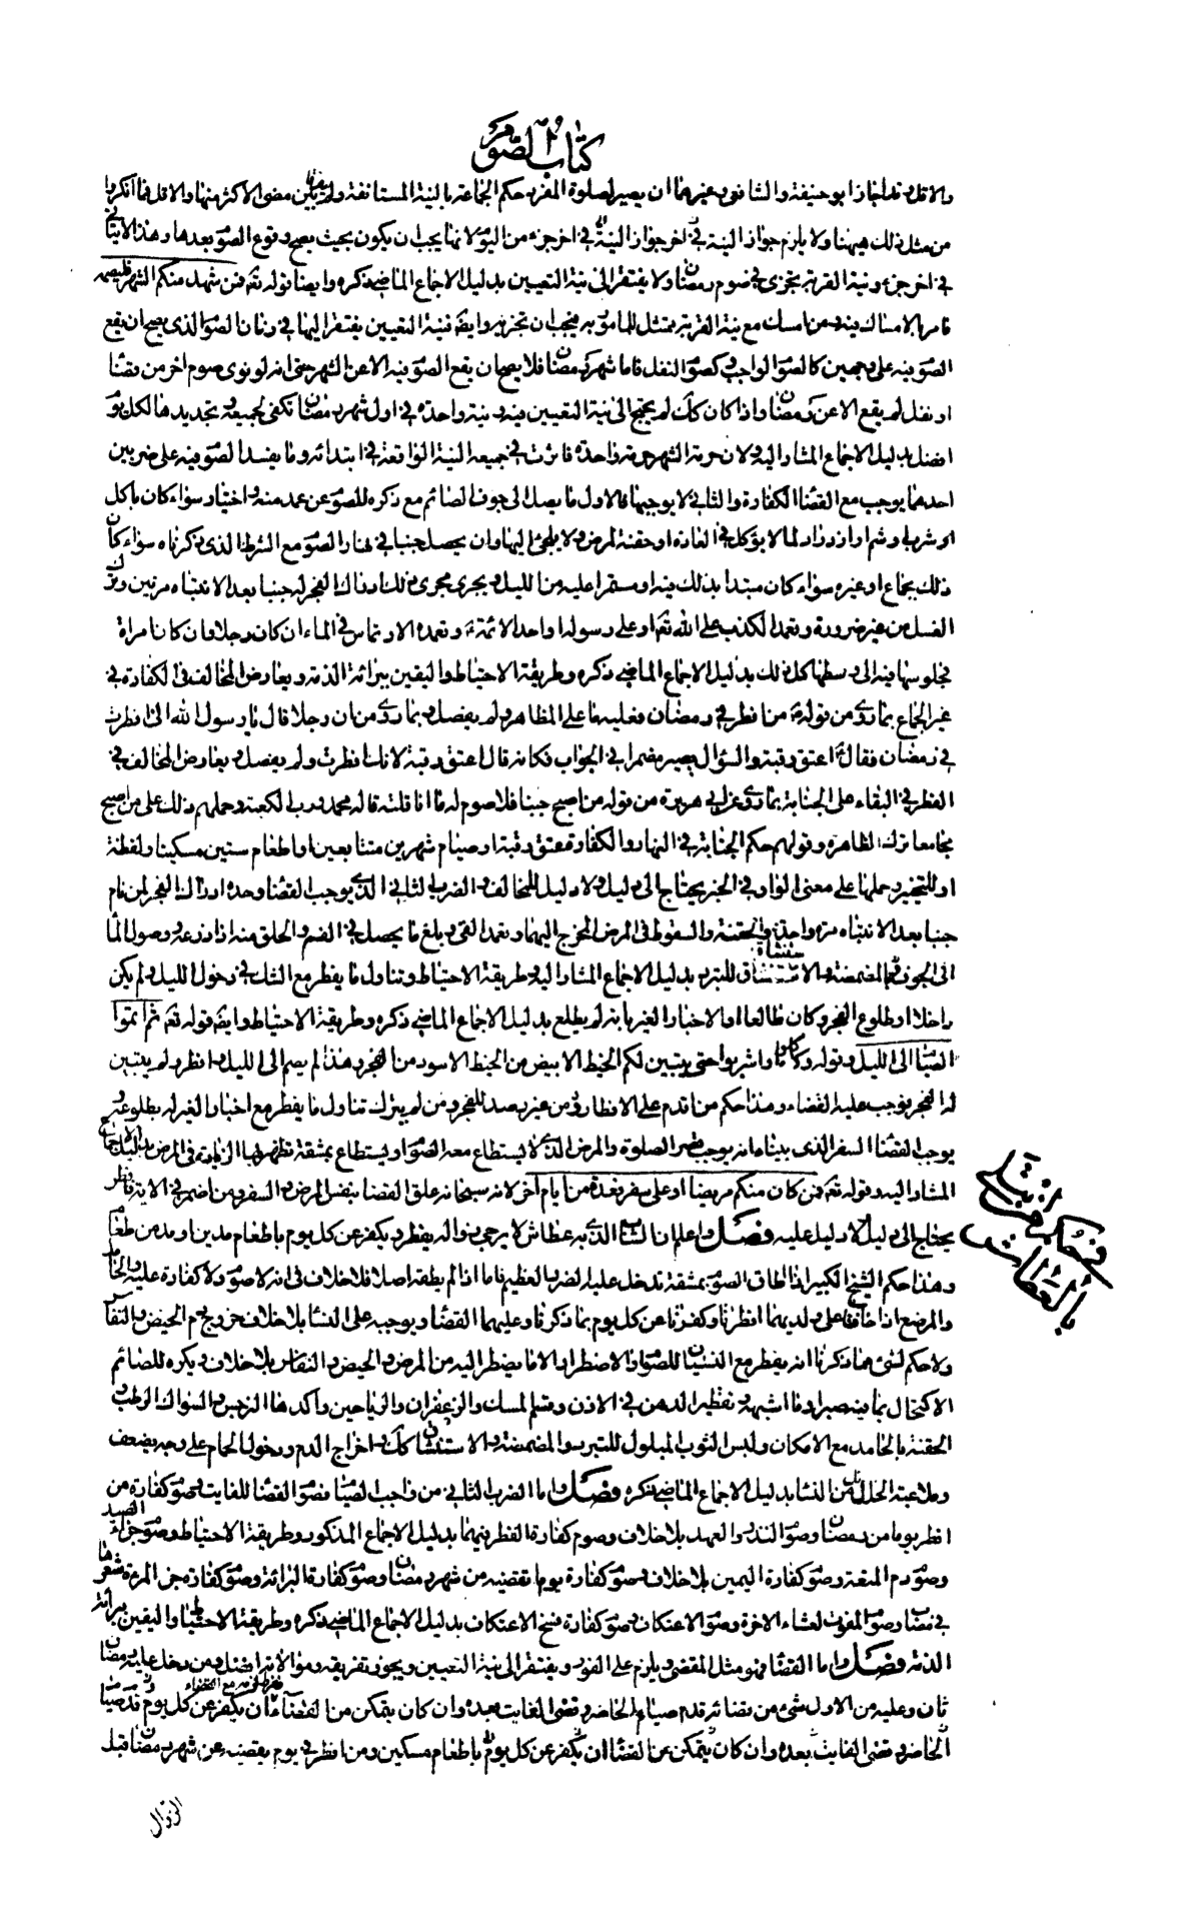 كتاب الصوم
والاقل وقد اجاز ابو حنيفة والشافعي وغيرهما ان يصير لصلوة المغرب حكم الجماعة بالنية المستانفة وان مضى الاكثر منها والاقل فما انكروا
من مثل ذلك هيهنا ولا يلزم جواز النية في اخر جزء من اليوم لانها يجب ان يكون بحيث يصح وقوع الصوم بعدها وهذا لا يتاتى
في اخر جزء ونية القربة تجزى في صوم رمضان ولا يفتقر الى نية التعيين بدليل الاجماع الماضي ذكره وايضا قوله تعالى فمن شهد منكم الشهر فليصمه
فامر بالامساك فيه ومن امسك مع نية القربة ممتثل للمامور به فيجب ان تجزيه وايضا فنية التعيين يفتقر اليها في زمان الصوم الذى يصح ان يقع
الصوم فيه على وجهين كالصوم الواجب وكصوم النفل فاما شهر رمضان فلا يصح ان يقع الصوم فيه الا عن الشهر حتى انه لو نوى صوم اخر من قضاء
او نفل لم يقع الا عن رمضان واذا كان كك لم يحتج الى نية التعيين فيه ونية واحدة في اول شهر رمضان تكفى لجميعه وتجديدها لكل يوم
افضل بدليل الاجماع المشار اليه ولان حرمة الشهر حرمة واحدة فاثرت في جميعه النية الواقعة في ابتدائه وما يفسد الصوم فيه على ضربين
احدهما يوجب مع القضاء الكفارة والثاني لا يوجبها فالاول ما يصل الى جوف الصائم مع ذكره للصوم عن عمد منه واختيار سواء كان باكل
او شرب او شم او ازدراد لما لا يؤكل في العادة او حقنة لمرض لا يلجئ اليها وان يحصل جنبا في نهار الصوم مع الشرط الذى ذكرناه سواء كان
ذلك بجماع او غيره سواء كان مبتدا بذلك فيه او مستمرا عليه من الليل ويجرى مجرى ذلك ادراك الفجر له جنبا بعد الانتباه مرتين وترك
الغسل من غير ضرورة وتعمد الكذب على الله تعالى او على رسوله او احد الائمة ع وتعمد الارتماس في الماء ان كان رجلا وان كان امراة
فجلوسها فيه الى وسطها كل ذلك بدليل الاجماع الماضي ذكره وطريقة الاحتياط واليقين ببرائة الذمة ويعارض المخالف في الكفارة في
غير الجماع بما روى من قوله ع من افطر في رمضان فعليه ما على المظاهر ولم يفصل وبما روى من ان رجلا قال يا رسول الله انى افطرت
في رمضان فقال ع اعتق رقبة والسؤال يصير مضمرا في الجواب فكانه قال اعتق رقبة لانك افطرت ولم يفصل ويعارض المخالف في
الفطر في البقاء على الجنابة بما روى عن ابي هريرة من قوله من اصبح جنبا فلا صوم له ما انا قلته قاله محمد ورب الكعبة وحملهم ذلك على من اصبح
مجامعا ترك الظاهر وقولهم حكم الجنابة في النهار والكفارة عتق رقبة او صيام شهرين متتابعين او اطعام ستين مسكينا ولفظة
او للتخيير وحملها على معنى الواو في الخبر يحتاج الى دليل ولا دليل للمخالف والضرب الثاني الذى يوجب القضاء وحده ادراك الفجر لمن نام
جنبا بعد الانتباه مرة واحدة والحقنة والسعوط في المرض المحوج اليهما وتعمد القى وبلع ما يحصل في الفم والحلق منه اذا ذرعه ووصول الماء
الى الجوف في المضمضة والاستنشاق للتبرد بدليل الاجماع المشار اليه وطريقة الاحتياط وتناول ما يفطر مع الشك في دخول الليل ولم يكن
داخلا او طلوع الفجر وكان طالعا او الاخبار الغير بانه لم يطلع بدليل الاجماع الماضي ذكره وطريقة الاحتياط وايضا قوله تعالى ثم اتموا
الصيام الى الليل وقوله وكلوا واشربوا حتى يتبين لكم الخيط الابيض من الخيط الاسود من الفجر وهذا لم يصم الى الليل وافطر ولم يتبين
له الفجر فوجب عليه القضاء وهذا حكم من اقدم على الافطار من غير رصد للفجر ومن لم يترك تناول ما يفطر مع اخبار الغير له بطلوعه و
يوجب القضاء السفر الذى بيناه انه يوجب قصر الصلوة والمرض الذى لا يستطاع معه الصوم او يستطاع بمشقة تظهر بها الزيادة في المرض بدليل الاجماع
المشار اليه وقوله تعالى فمن كان منكم مريضا او على سفر فعدة من ايام اخر لانه سبحانه علق القضاء بنفس المرض والسفر ومن اضمر في الاية فافطر
يحتاج الى دليل ولا دليل عليه فصل واعلم ان الشاب الذى به عطاش لا يرجى زواله يفطر ويكفر عن كل يوم باطعام مدين او مد من طعام
وهذا حكم الشيخ الكبير اذا اطاق الصوم بمشقة تدخل عليه الضرر العظيم فاما اذا لم يطقه اصلا فلا خلاف في انه لا صوم ولا كفارة عليه والحامل
والمرضع اذا خافتا على ولديهما افطرتا وكفرتا عن كل يوم بما ذكرنا وعليهما القضاء ويوجبه على النساء بلا خلاف خروج دم الحيض والنفاس
ولا حكم لشئ مما ذكرنا انه يفطر مع النسيان للصوم او الاضطرار الا ما يضطر اليه من المرض والحيض والنفاس بلا خلاف ويكره للصائم
الاكتحال بما فيه صبر او ما اشبهه وتقطير الدهن في الاذن وشم المسك والزعفران والرياحين واكدها النرجس والسواك الرطب و
الحقنة بالجامد مع الامكان ولبس الثوب المبلول للتبرد والمضمضة والاستنشاق كك واخراج الدم ودخول الحمام على وجه يضعف
وملاعبة الحلائل من النساء بدليل الاجماع الماضي ذكره فصل واما الضرب الثاني من واجب الصيام فصوم القضاء للفايت وصوم كفارة من
افطر يوما من رمضان وصوم النذر والعهد بلا خلاف وصوم كفارة الفطر فيهما بدليل الاجماع المذكور وطريقة الاحتياط وصوم جزاء الصيد
وصوم دم المتعة وصوم كفارة اليمين بلا خلاف وصوم كفارة يوم يقضيه من شهر رمضان وصوم كفارة البرائة وصوم كفارة جز المرءة شعرها
في مصاب وصوم المفوت لعشاء الاخرة وصوم الاعتكاف وصوم كفارة فسخ الاعتكاف بدليل الاجماع الماضي ذكره وطريقة الاحتياط واليقين ببرائة
الذمة فصل واما القضاء فهو مثل المقضى ويلزم على الفور ويفتقر الى نية التعيين ويجوز تفريقه وموالاته افضل ومن دخل عليه رمضان
ثان وعليه من الاول شئ من قضائه قدم صيام الحاضر وقضى الفايت بعده وان كان يتمكن من القضاء ان يكفر عن كل يوم
الحاضر وقضى الفايت بعده وان كان يتمكن من القضاء ان يكفر عن كل يوم باطعام مسكين ومن افطر في يوم يقضيه عن شهر رمضان قبل
الزوال